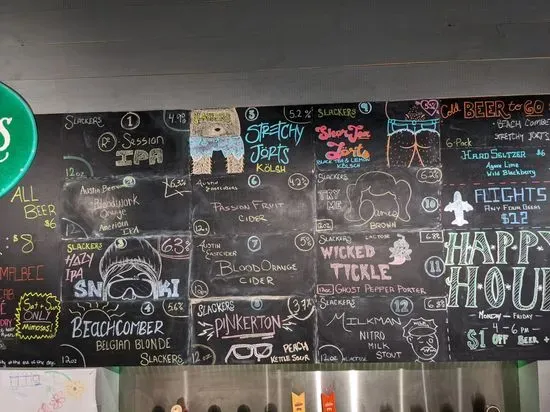 S
ALL
BEER
$6
$8
MALBEC
Sat + Sun
ONLY
Mimosas!
SLACKERS
1
4.9%
R2 SESSION
IPA
AUSTIN BEER
2
6.3%
Bloodwork
Orange
AMERICAN
IPA
SLACKERS
3
6.3%
HAZY
IPA
SNOSKI
4
5.6%
BEACHCOMBER
BELGIAN BLONDE
12oz
SLACKERS
SLACKERS
5
5.2%
STRETCHY
JORTS
KÖLSH
AUSTIN
EASTCIDERS
6
PASSION FRUIT
CIDER
12oz
AUSTIN
EASTCIDER
7
BLOOD ORANGE
CIDER
SLACKERS
8
PINKERTON
PEACH
KETTLE SOUR
12oz
SLACKERS
9
JORTS
BLACK TEA & LEMON
KÖLSCH
SLACKERS
TRY
ME
10
BROWN
12oz
SLACKERS
LACTOSE
6.8%
WICKED
TICKLE
11
GHOST PEPPER PORTER
12oz
12
6.8%
MILKMAN
NITRO
MILK
STOUT
LACTOSE
Cold BEER TO GO
6-Pack
STRETCHY JORTS
HARD SELTZER $6
Agave Lime
Wild Blackbury
FLIGHTS
ANY FOUR BEERS
$12
HAPPY
HOUR
MONDAY - FRIDAY
4 - 6 PM
$1 OFF BEER +